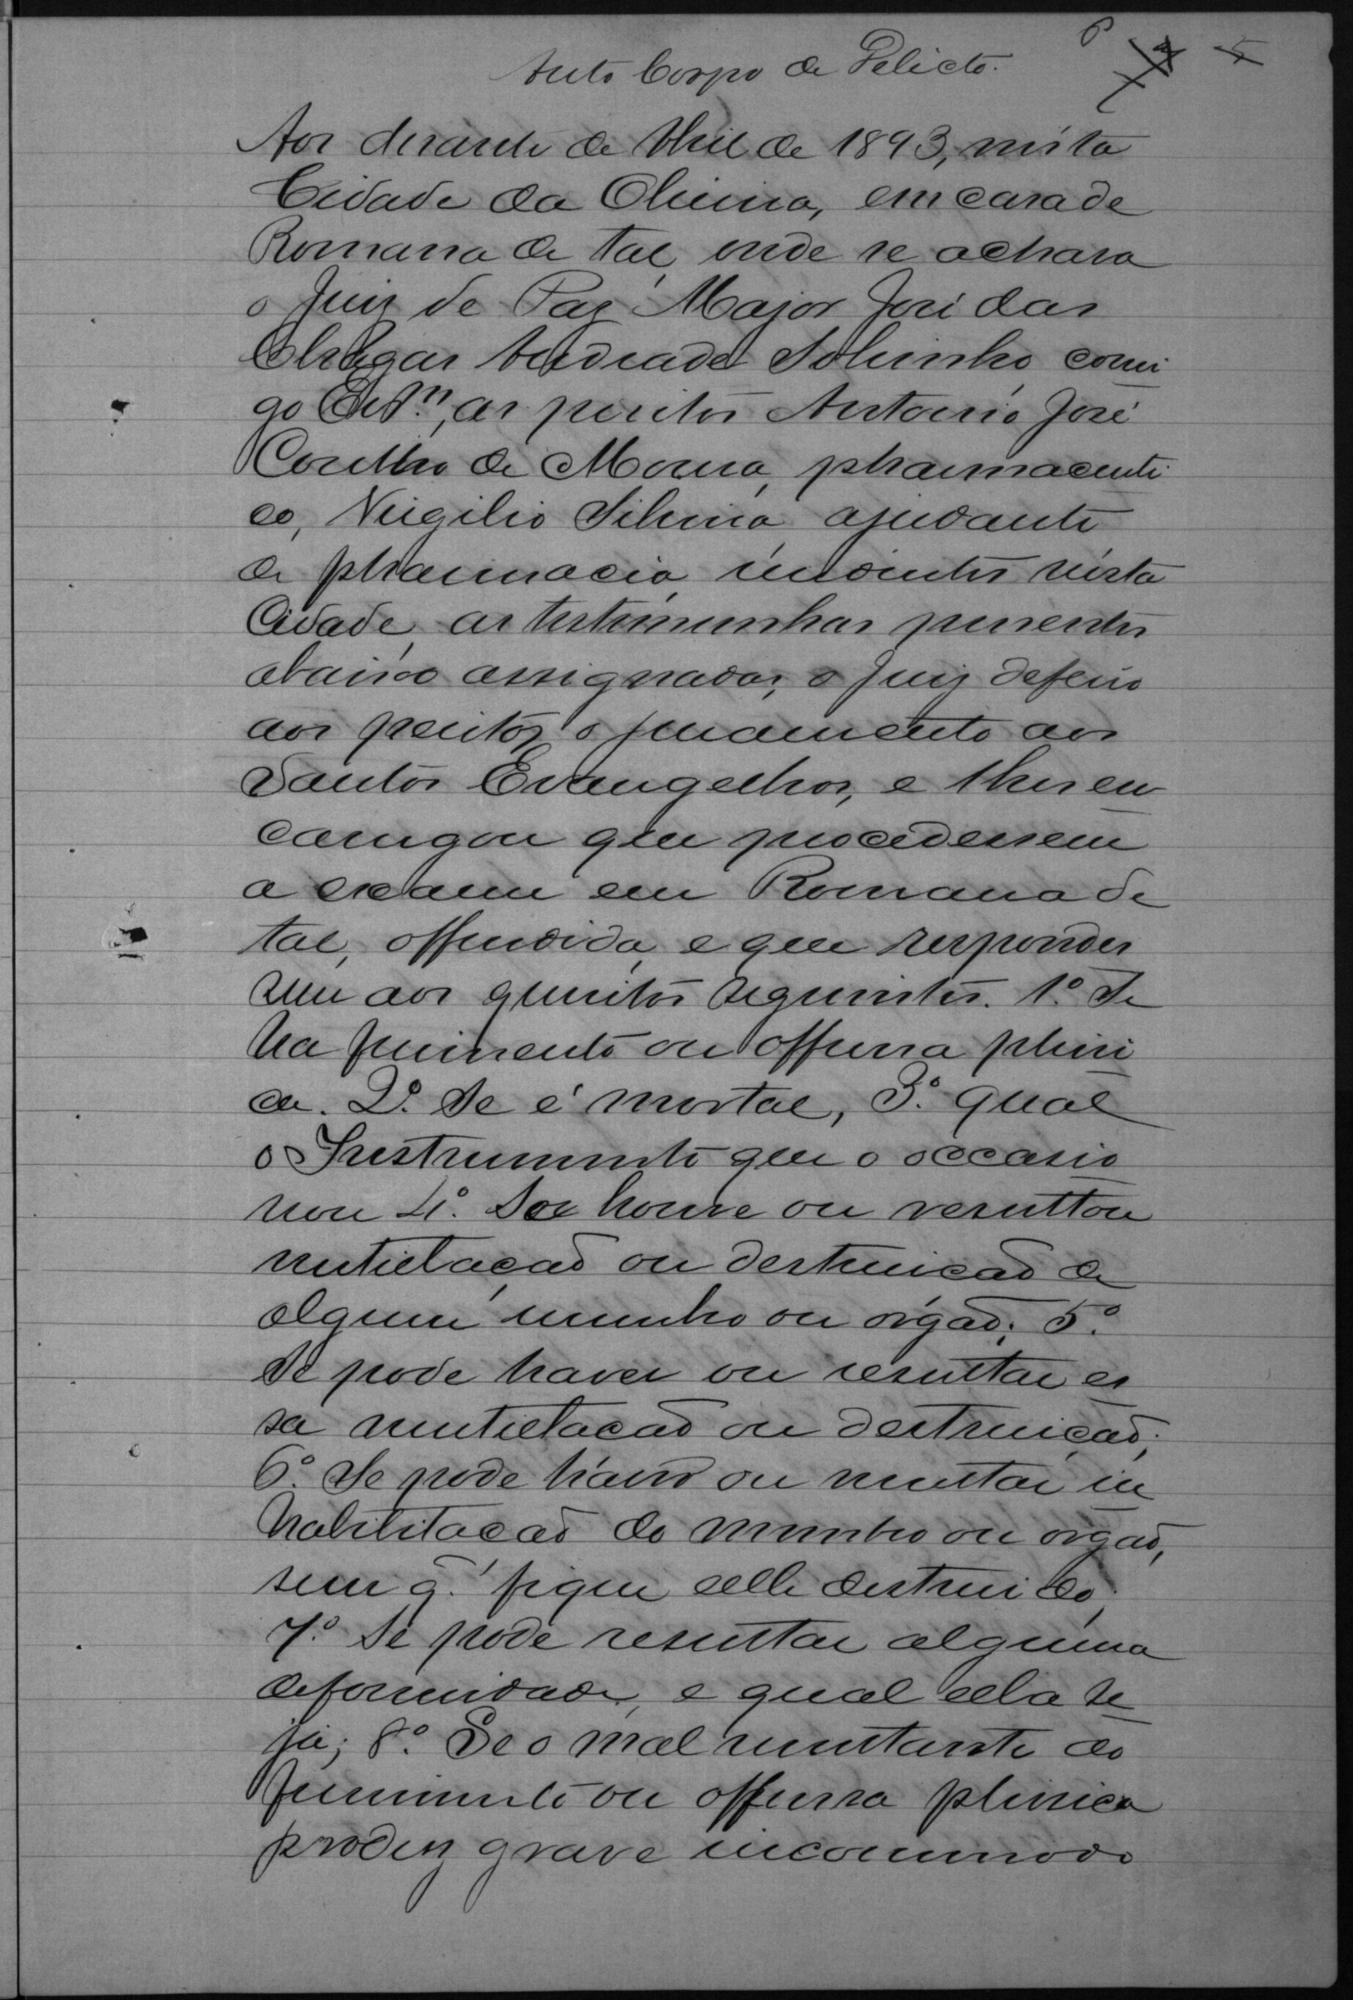 6
Auto Corpo de Delicto.
Aos desasete de Abril de 1893, nésta
Cidade da Oliveira, em casa de
Romana de tal, onde se achava
o Juiz de Paz Major José das
Chagas Andrade Sobrinho comi
go Escr.m, os peritos Antonio José
Coelho de Moura, pharmaceuti
co, Virgilio Silveira ajudante
de pharmacia residentes nésta
Cidade, as testimunhas presentes
abaixo assignadas, o Juiz deferio
aos peritos o juramento aos
Santos Evangelhos, e lhes en
carregou que procedessem
a exame em Romana de
tal, offendida, e que respondes
sem aos quesitos seguintes. 1.º Se
ha ferimento ou offensa phisi
ca. 2.º Se é mortal, 3.º qual
o Instrumento que o occasio
nou 4.º Se houve ou resultou
mutilação ou destruição de
algum membro ou orgão; 5.º
Se pode haver ou resultar es
sa mutilação ou destruição;
6.º Se pode haver ou resultar in
habilitação do membro ou orgão,
sem q. fique elle destruido;
7.º Se pode resultar alguma
deformidade, e qual ella se
ja; 8.º Se o mal resultante do
ferimento ou offensa phisica
produz grave incommodo